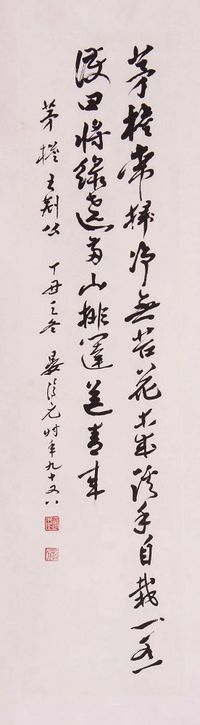 茅檐常掃净無苔花木成蹊手自栽一水
護田將綠遶兩山排闥送青來
茅檐 王荆公 丁丑之冬 晏濟元时年九十又八